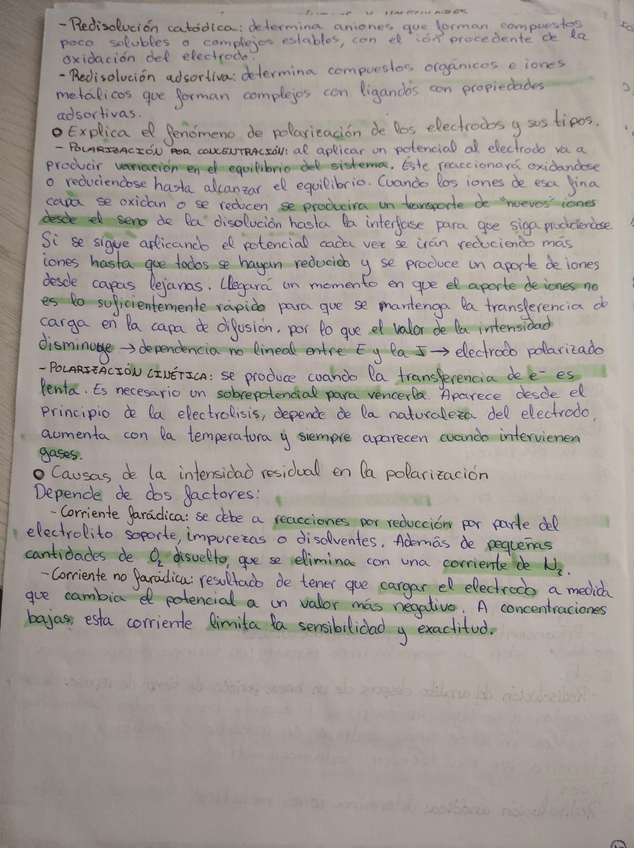 - Redisolución catódica: determina aniones que forman compuestos
poco solubles o complejos estables, con el ión procedente de la
oxidación del electrodo.
- Redisolución adsortiva: determina compuestos orgánicos e iones
metálicos que forman complejos con ligandos con propiedades
adsortivas.
Explica el fenómeno de polarización de los electrodos y sus tipos.
- POLARIZACIÓN POR CONCENTRACIÓN: al aplicar un potencial al electrodo va a
producir variación en el equilibrio del sistema. Éste reaccionará oxidandose
o reduciendose hasta alcanzar el equilibrio. Cuando los iones de esa fina
capa se oxidan o se reducen se producirá un transporte de "nuevos" iones
desde el seno de la disolución hasta la interfase para que siga produciendose.
Si se sigue aplicando el potencial cada vez se irán reduciendo más
iones hasta que todos se hayan reducido y se produce un aporte de iones
desde capas lejanas. Llegará un momento en que el aporte de iones no
es lo suficientemente rápido para que se mantenga la transferencia de
carga en la capa de difusión, por lo que el valor de la intensidad
disminuye → dependencia no lineal entre E y la I → electrodo polarizado
- POLARIZACIÓN CINÉTICA: se produce cuando la transferencia de e⁻ es
lenta. Es necesario un sobrepotencial para vencerla. Aparece desde el
principio de la electrolisis, depende de la naturaleza del electrodo,
aumenta con la temperatura y siempre aparecen cuando intervienen
gases.
Causas de la intensidad residual en la polarización
Depende de dos factores:
- Corriente farádica: se debe a reacciones por reducción por parte del
electrolito soporte, impurezas o disolventes. Además de pequeñas
cantidades de O₂ disuelto, que se elimina con una corriente de N₂.
- Corriente no farádica: resultado de tener que cargar el electrodo a medida
que cambia el potencial a un valor más negativo. A concentraciones
bajas, esta corriente limita la sensibilidad y exactitud.